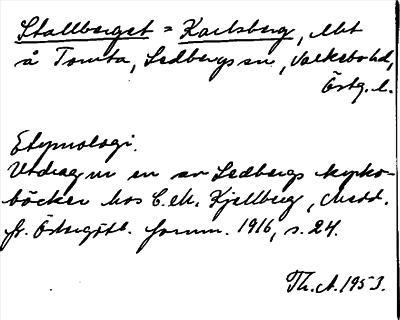 Stallberget = Karlsberg, lht
å Tomta, Ledbergs sn, Valkebo hd,
Östg. l.
Etymologi.
Utdrag ur en av Ledbergs kyrko-
böcker hos C. M. Kjellberg, Medd.
fr. Östergötl. fornm. 1916, s. 24.
Th. A. 1953.